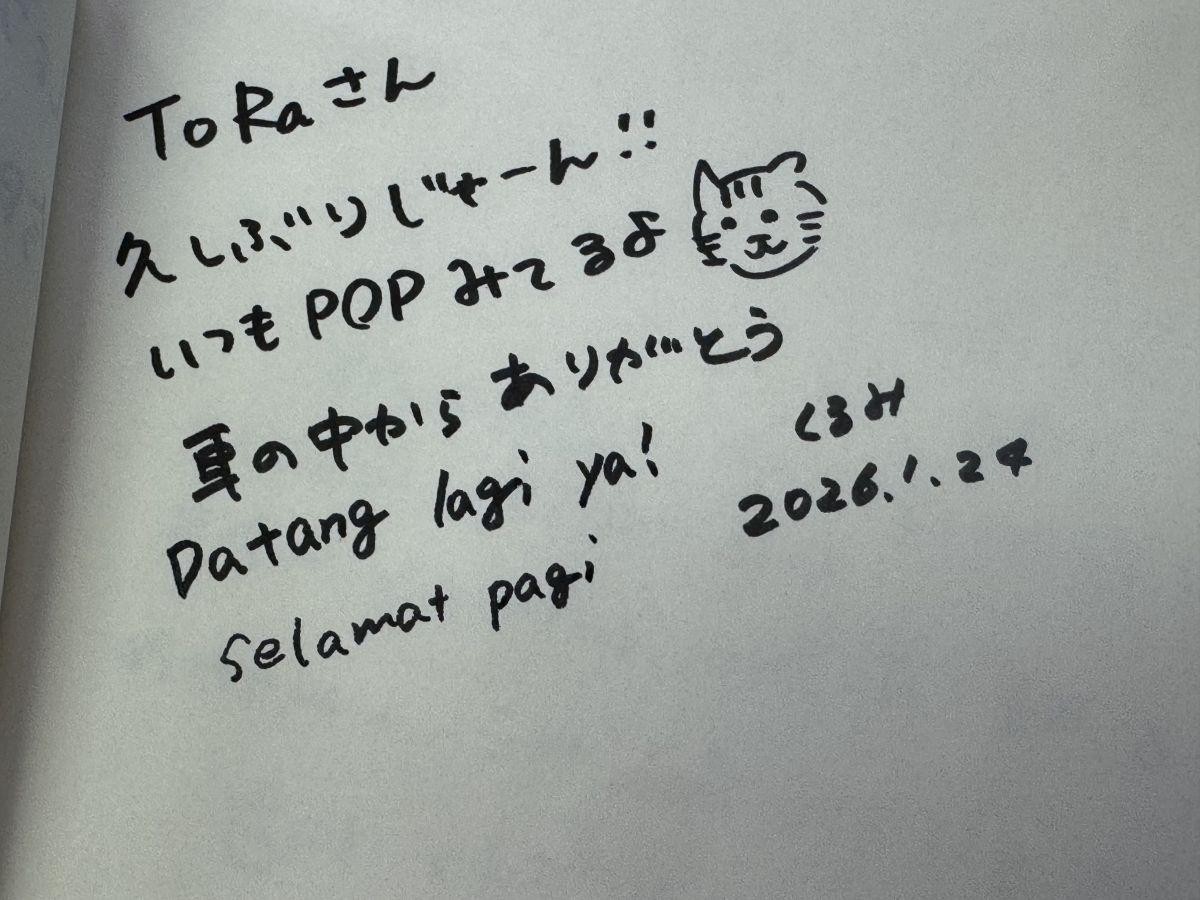 ToRaさん
久しぶりじゃーん!!
いつもPOPみてるよ
車の中からありがとう
Datang lagi ya!
Selamat pagi
くるみ
2026.1.24